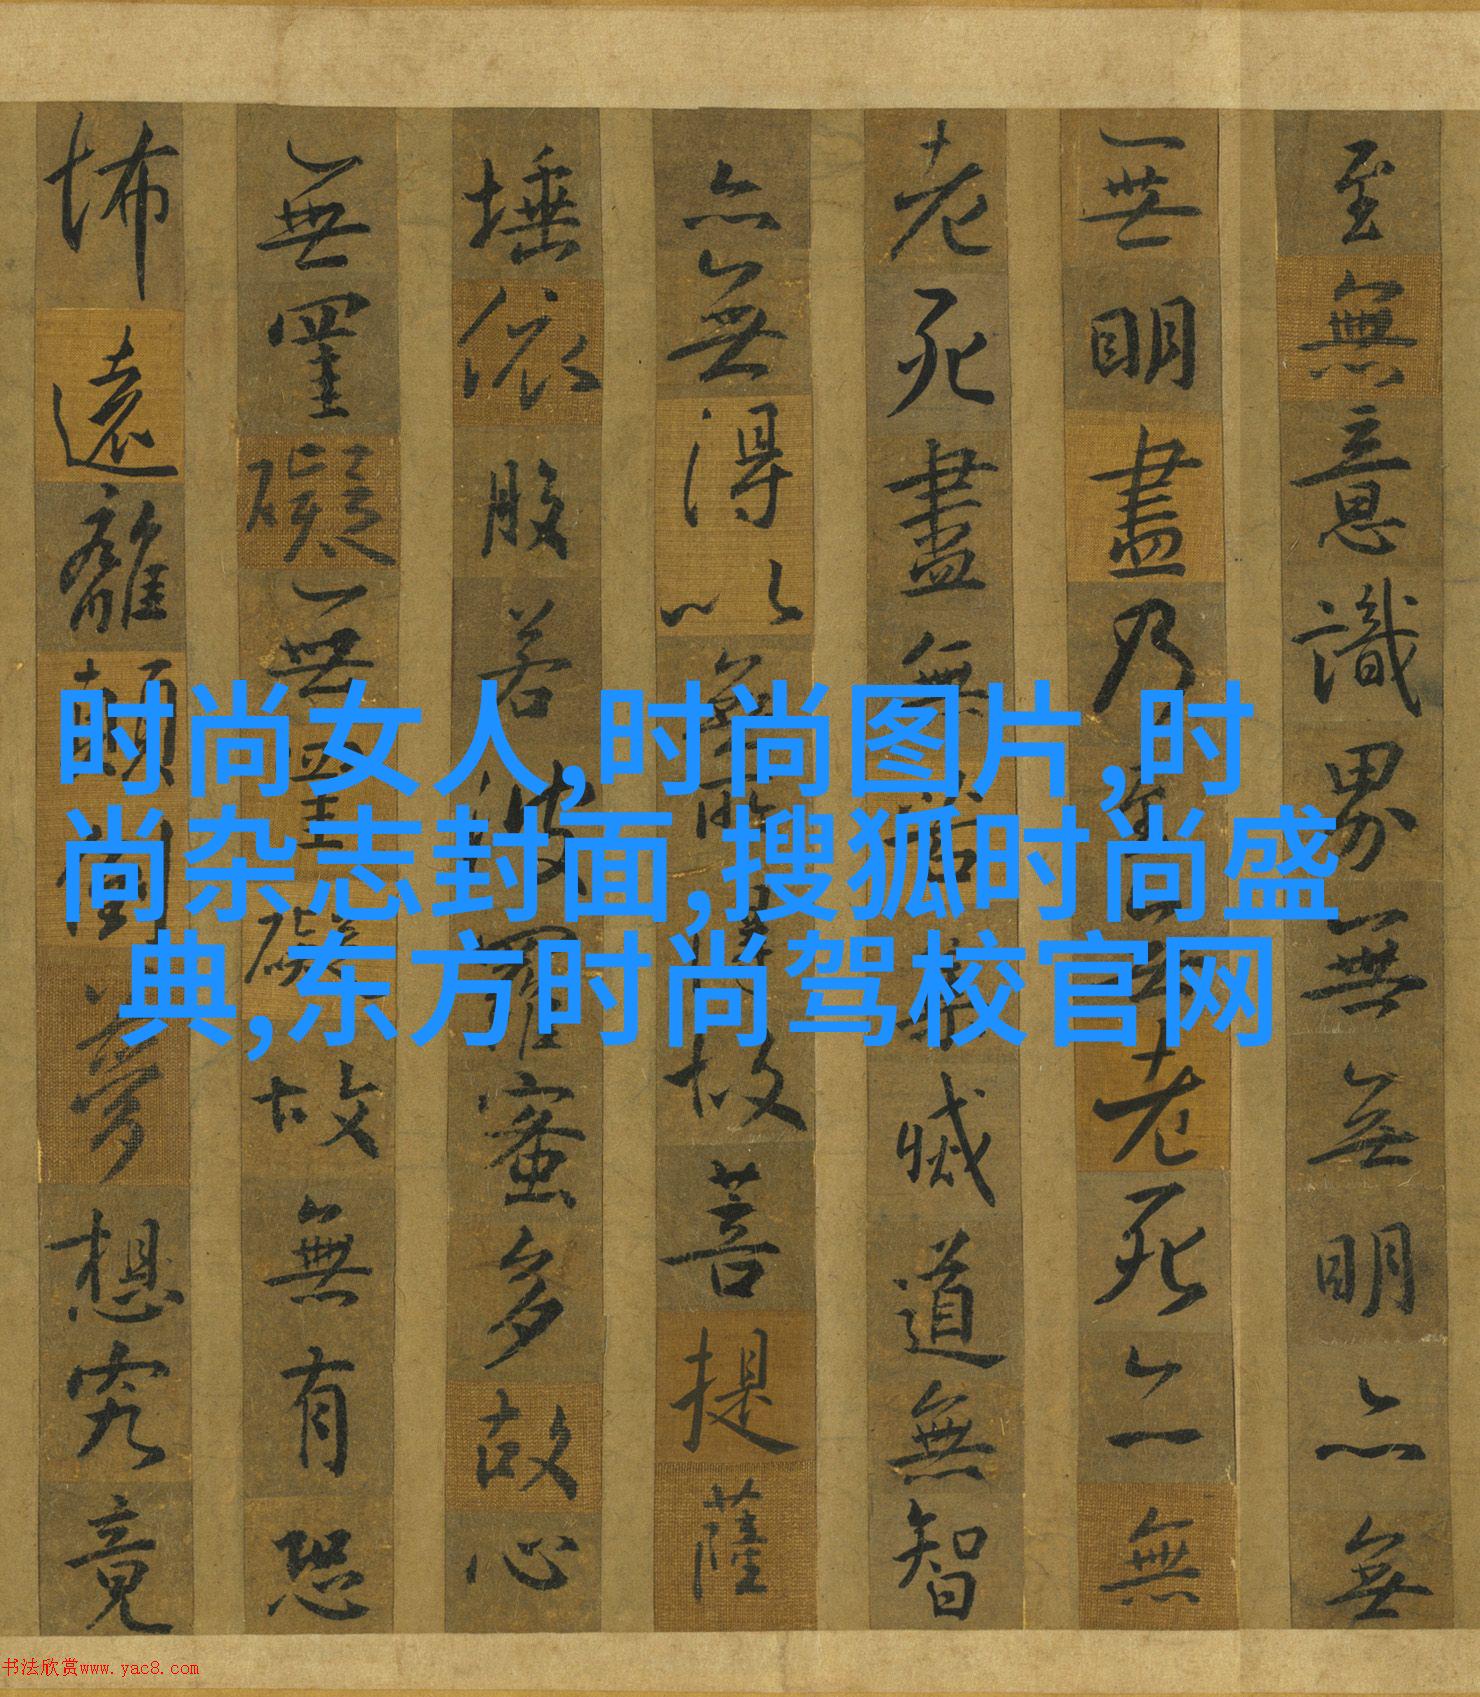 至無意識界無無明亦無
無明盡乃至無老死亦無
老死盡無苦集滅道無智
亦無得以無所得故菩提薩
埵依般若波羅蜜多故心
無罣礙無罣礙故無有恐
怖遠離顛倒夢想究竟
时尚女人,时尚图片,时
尚杂志封面,搜狐时尚盛
典,东方时尚驾校官网
书法欣赏www.yac8.com